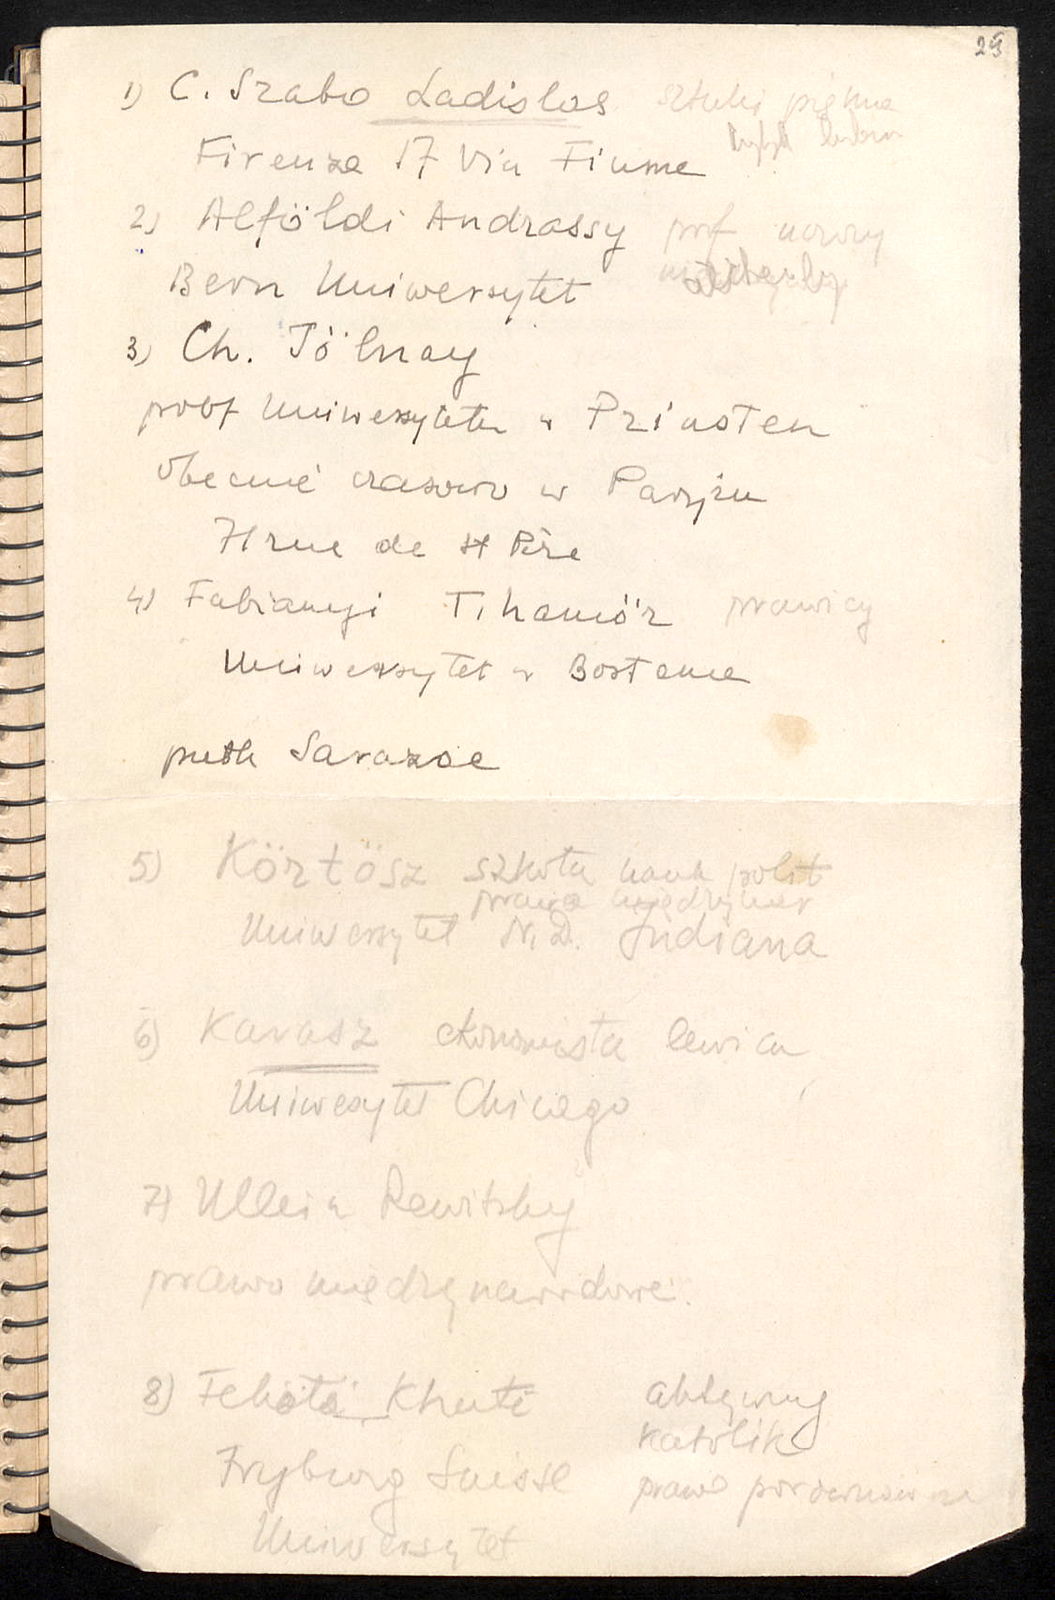 29
1) C. Szabo Ladislas sztuki piękne
Firenze 17 Via Fiume
2) Alföldi Andrassy prof
Bern Uniwersytet
3) Ch. Tölnay
prof Uniwersytetu w Prinsten
obecnie czasowo w Paryżu
71 rue de St Père
4) Fabianyi Tihamör prawicy
Uniwersytet w Bostonie
5) Körtösz szkoła nauk polit
prawo międzynar
Uniwersytet N.D. Indiana
6) Karasz ekonomista lewica
Uniwesytet Chicago
7) Ullein Rewitzky
prawo międzynarodowe.
8) Feketä Khuti aktywny
katolik
Fryburg Suisse prawo porównawcze
Uniwersytet